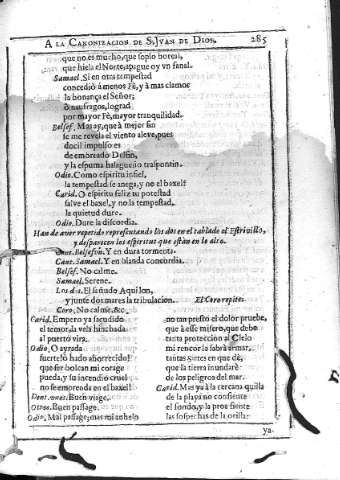 A LA CANONIZACION DE S. IVAN DE DIOS. 285
que no es mucho, que soplo boreal,
que hiela el Norte, apague oy vn fanal.
Samael. Si en otra tempestad
concediò à menos Fè, y à mas clamor
la bonança el Señor;
ò naufragos, lograd
por mayor Fè, mayor tranquilidad.
Belsef. Mas ay, que à mejor fin
se me revela el viento aleve, pues
docil impulso es
de embreado Delfin,
y la espuma halagueño traspontin.
Odio. Como espiritu infiel,
la tempestad se anega, y no el baxel?
Carid. O espiritu feliz tu potestad
salve el baxel, y no la tempestad.
la quietud dure.
Odio. Dure la discordia.
Han de aver repetido representando los dos en el tablado el Estrivillo,
y desparecen los espiritus que están en lo alto.
Cant. Belsefin. Y en dura tormenta.
Cant. Samael. Y en blanda concordia.
Belsef. No calme.
Samael. Serene.
Los dos. El sañudo Aquilon,
y junte dos mares la tribulacion. El Coro repite.
Coro. No calme, &c.
Carid. Empero ya sacudido
el temor, la vela hinchada
al puerto vira.
Odio. O ayrada
suerte! ò hado aborrecido!
que ser bolcan mi corage
pueda, y su incendio cruel
no se embreñada en el baxel!
Dent. unos. Buen viage.
Otros. Buen passage.
Odio. Mal passage; mas mi anhelo
no tan presto el dolor pruebe,
que à esse misero, que debe
tanta proteccion al Cielo
mi rencor la sabrà armar,
tantas suertes en que dè,
que la tierra inundarè
de los peligros del mar.
Carid. Mas ya à la cercana quilla
de la playa no consiente
el fondo, y la proa siente
las sospechas de la orilla:
ya